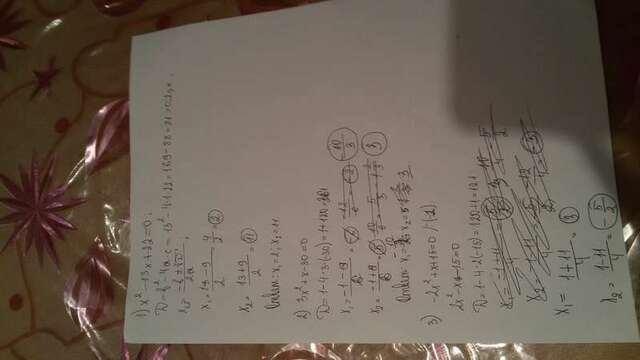 1) x² - 13x + 22 = 0;
D = b² - 4a·c = 13² - 4·1·22 = 169 - 88 = 81 > 0, 2 к.
x₁,₂ = (-b ± √D) / 2a;
x₁ = (13 - 9) / 2 = 4/2 = 2
x₂ = (13 + 9) / 2 = 11
Ответ: x₁ = 2; x₂ = 11
2) 3x² + x - 30 = 0
D = 1 - 4·3·(-30) = 1 + 120 =
x₁ = = -10/3
x₂ = = 3
Ответ: x₁ = -10/3 x₂ = 3
3) -2x² + x + 15 = 0 /·(-1)
2x² - x - 15 = 0
D = 1 - 4·2(-15) = 120 + 1 = 121
x₁ = (-1 + 11) / 4 = 5/2 10/4 = 5/2
x₂ = (-1 - 11) / 4 = -12/4
x₁ = (1 + 11) / 4 = 3
x₂ = (1 - 11) / 4 = -5/2